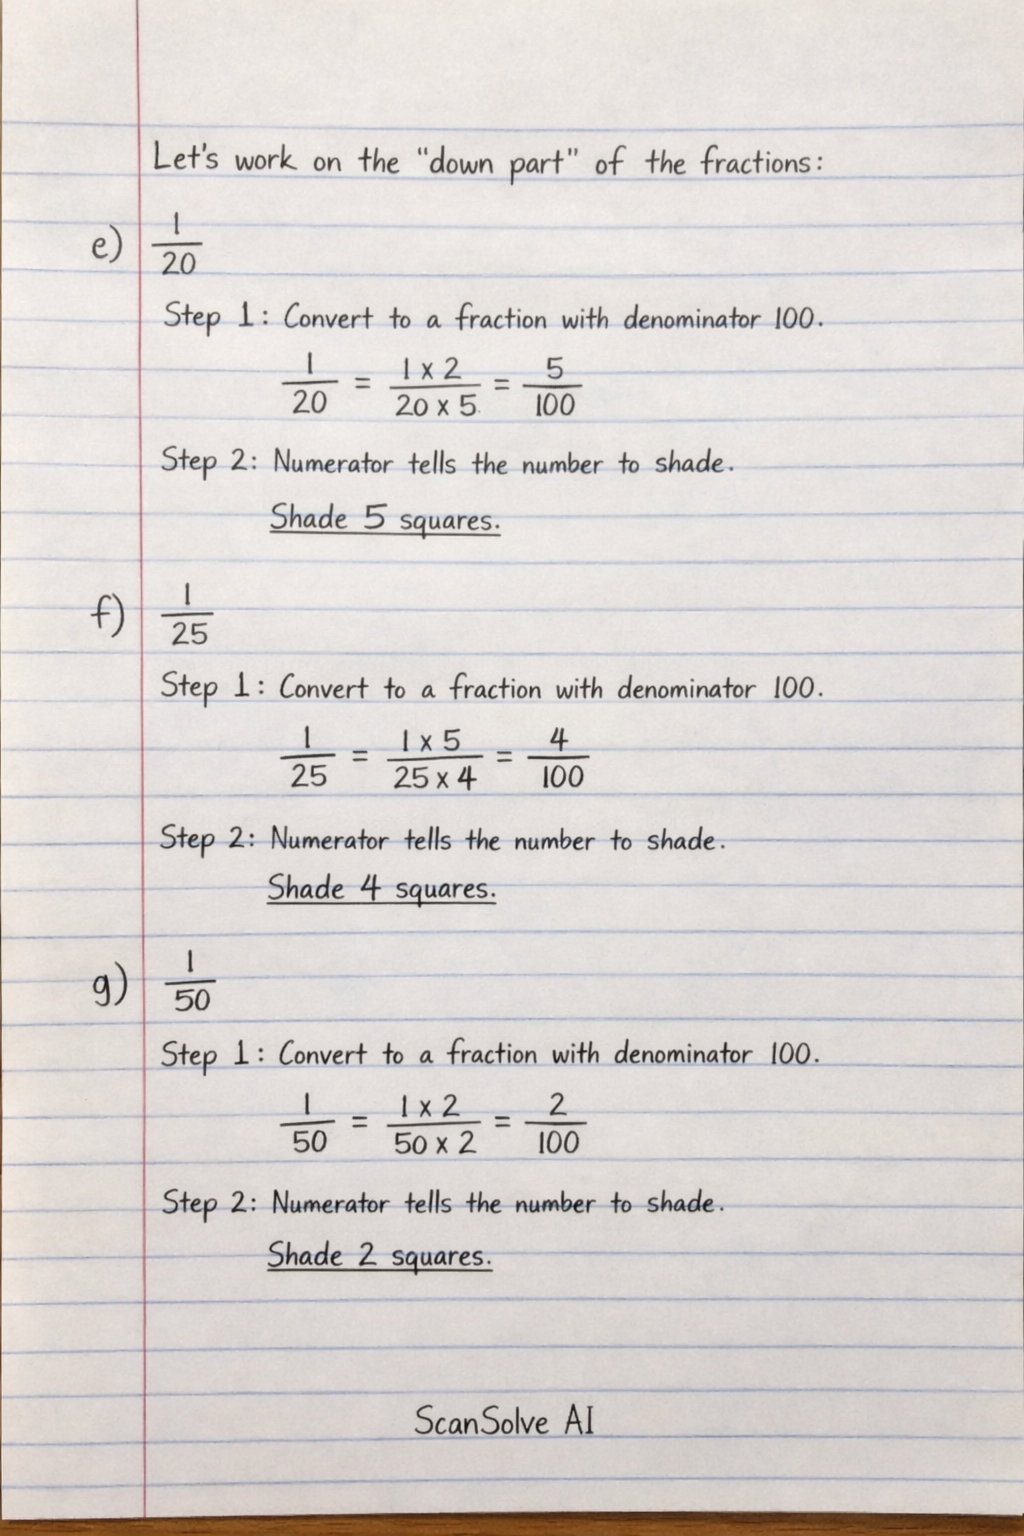 Let's work on the "down part" of the fractions:
e) 1/20
Step 1: Convert to a fraction with denominator 100.
1/20 = 1 x 2/20 x 5 = 5/100
Step 2: Numerator tells the number to shade.
Shade 5 squares.
f) 1/25
Step 1: Convert to a fraction with denominator 100.
1/25 = 1 x 5/25 x 4 = 4/100
Step 2: Numerator tells the number to shade.
Shade 4 squares.
g) 1/50
Step 1: Convert to a fraction with denominator 100.
1/50 = 1 x 2/50 x 2 = 2/100
Step 2: Numerator tells the number to shade.
Shade 2 squares.
ScanSolve AI